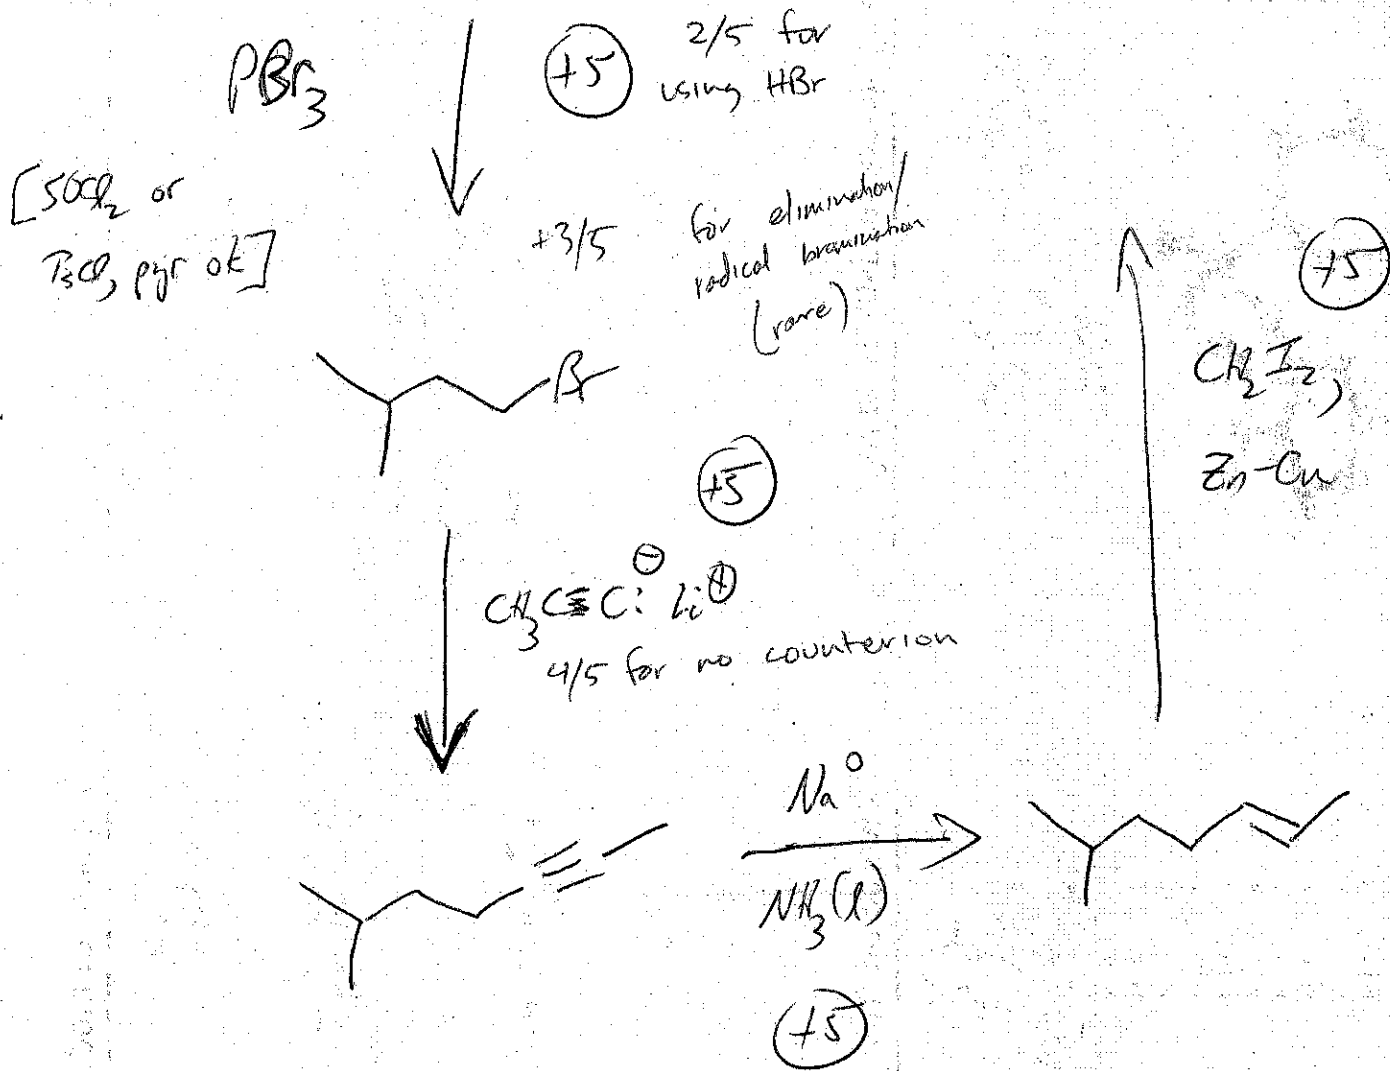 PBr3
+5
2/5 for
using HBr
[SOCl2 or
TsCl, pyr ok]
+3/5 for elimination/
radical bromination
(rare)
Br
+5
CH3C≡C:⊖ Li⊕
4/5 for no counterion
+5
CH2I2,
Zn-Cu
Na°
NH3(l)
+5